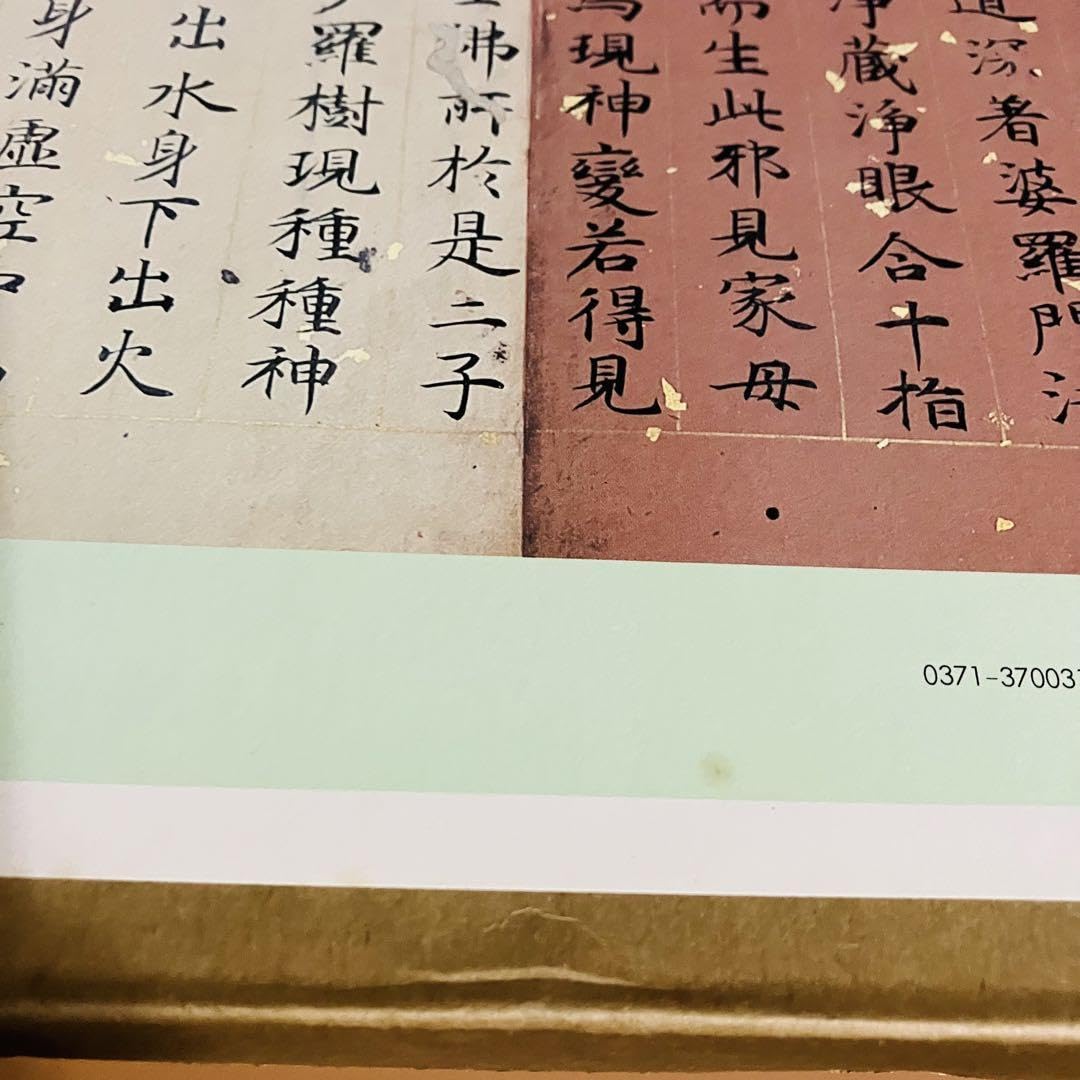 道深著婆羅門法
淨藏淨眼合十指
而生此邪見家母
為現神變若得見
佛所於是二子
羅樹現種種神
出水身下出火
身滿虛空
0371-37003